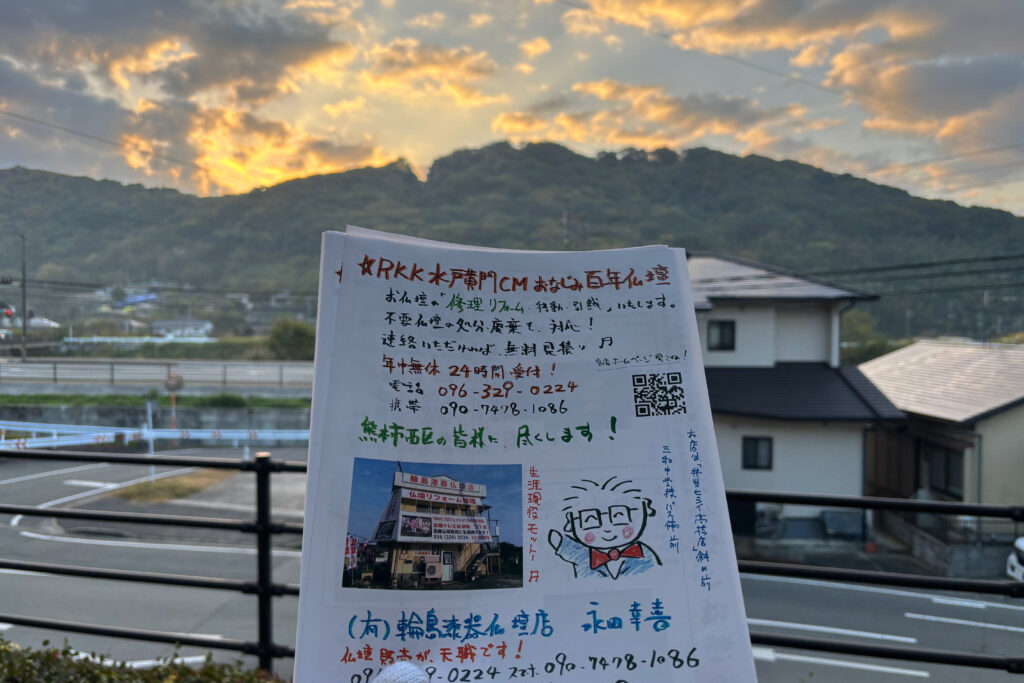 ☆RKK水戸黄門CMおなじみ百年仏壇
お仏壇の「修理リフォーム・移動・引越」いたします。
不要仏壇の処分、廃棄も、対応!
連絡いただければ、無料見積り
当店ホームページ
年中無休 24時間受付!
電話 096-329-0224
携帯 090-7478-1086
熊本市西区の皆様に、尽くします!
輪島漆器仏壇店
仏壇リフォーム修理
生涯現役モットー!
三和中学校バス停前
お店は、「弁当セミライ高橋店」斜め前
(有)輪島漆器仏壇店 永田幸喜
仏壇販売が、天職です!
9-0224 スマホ 090-7478-1086